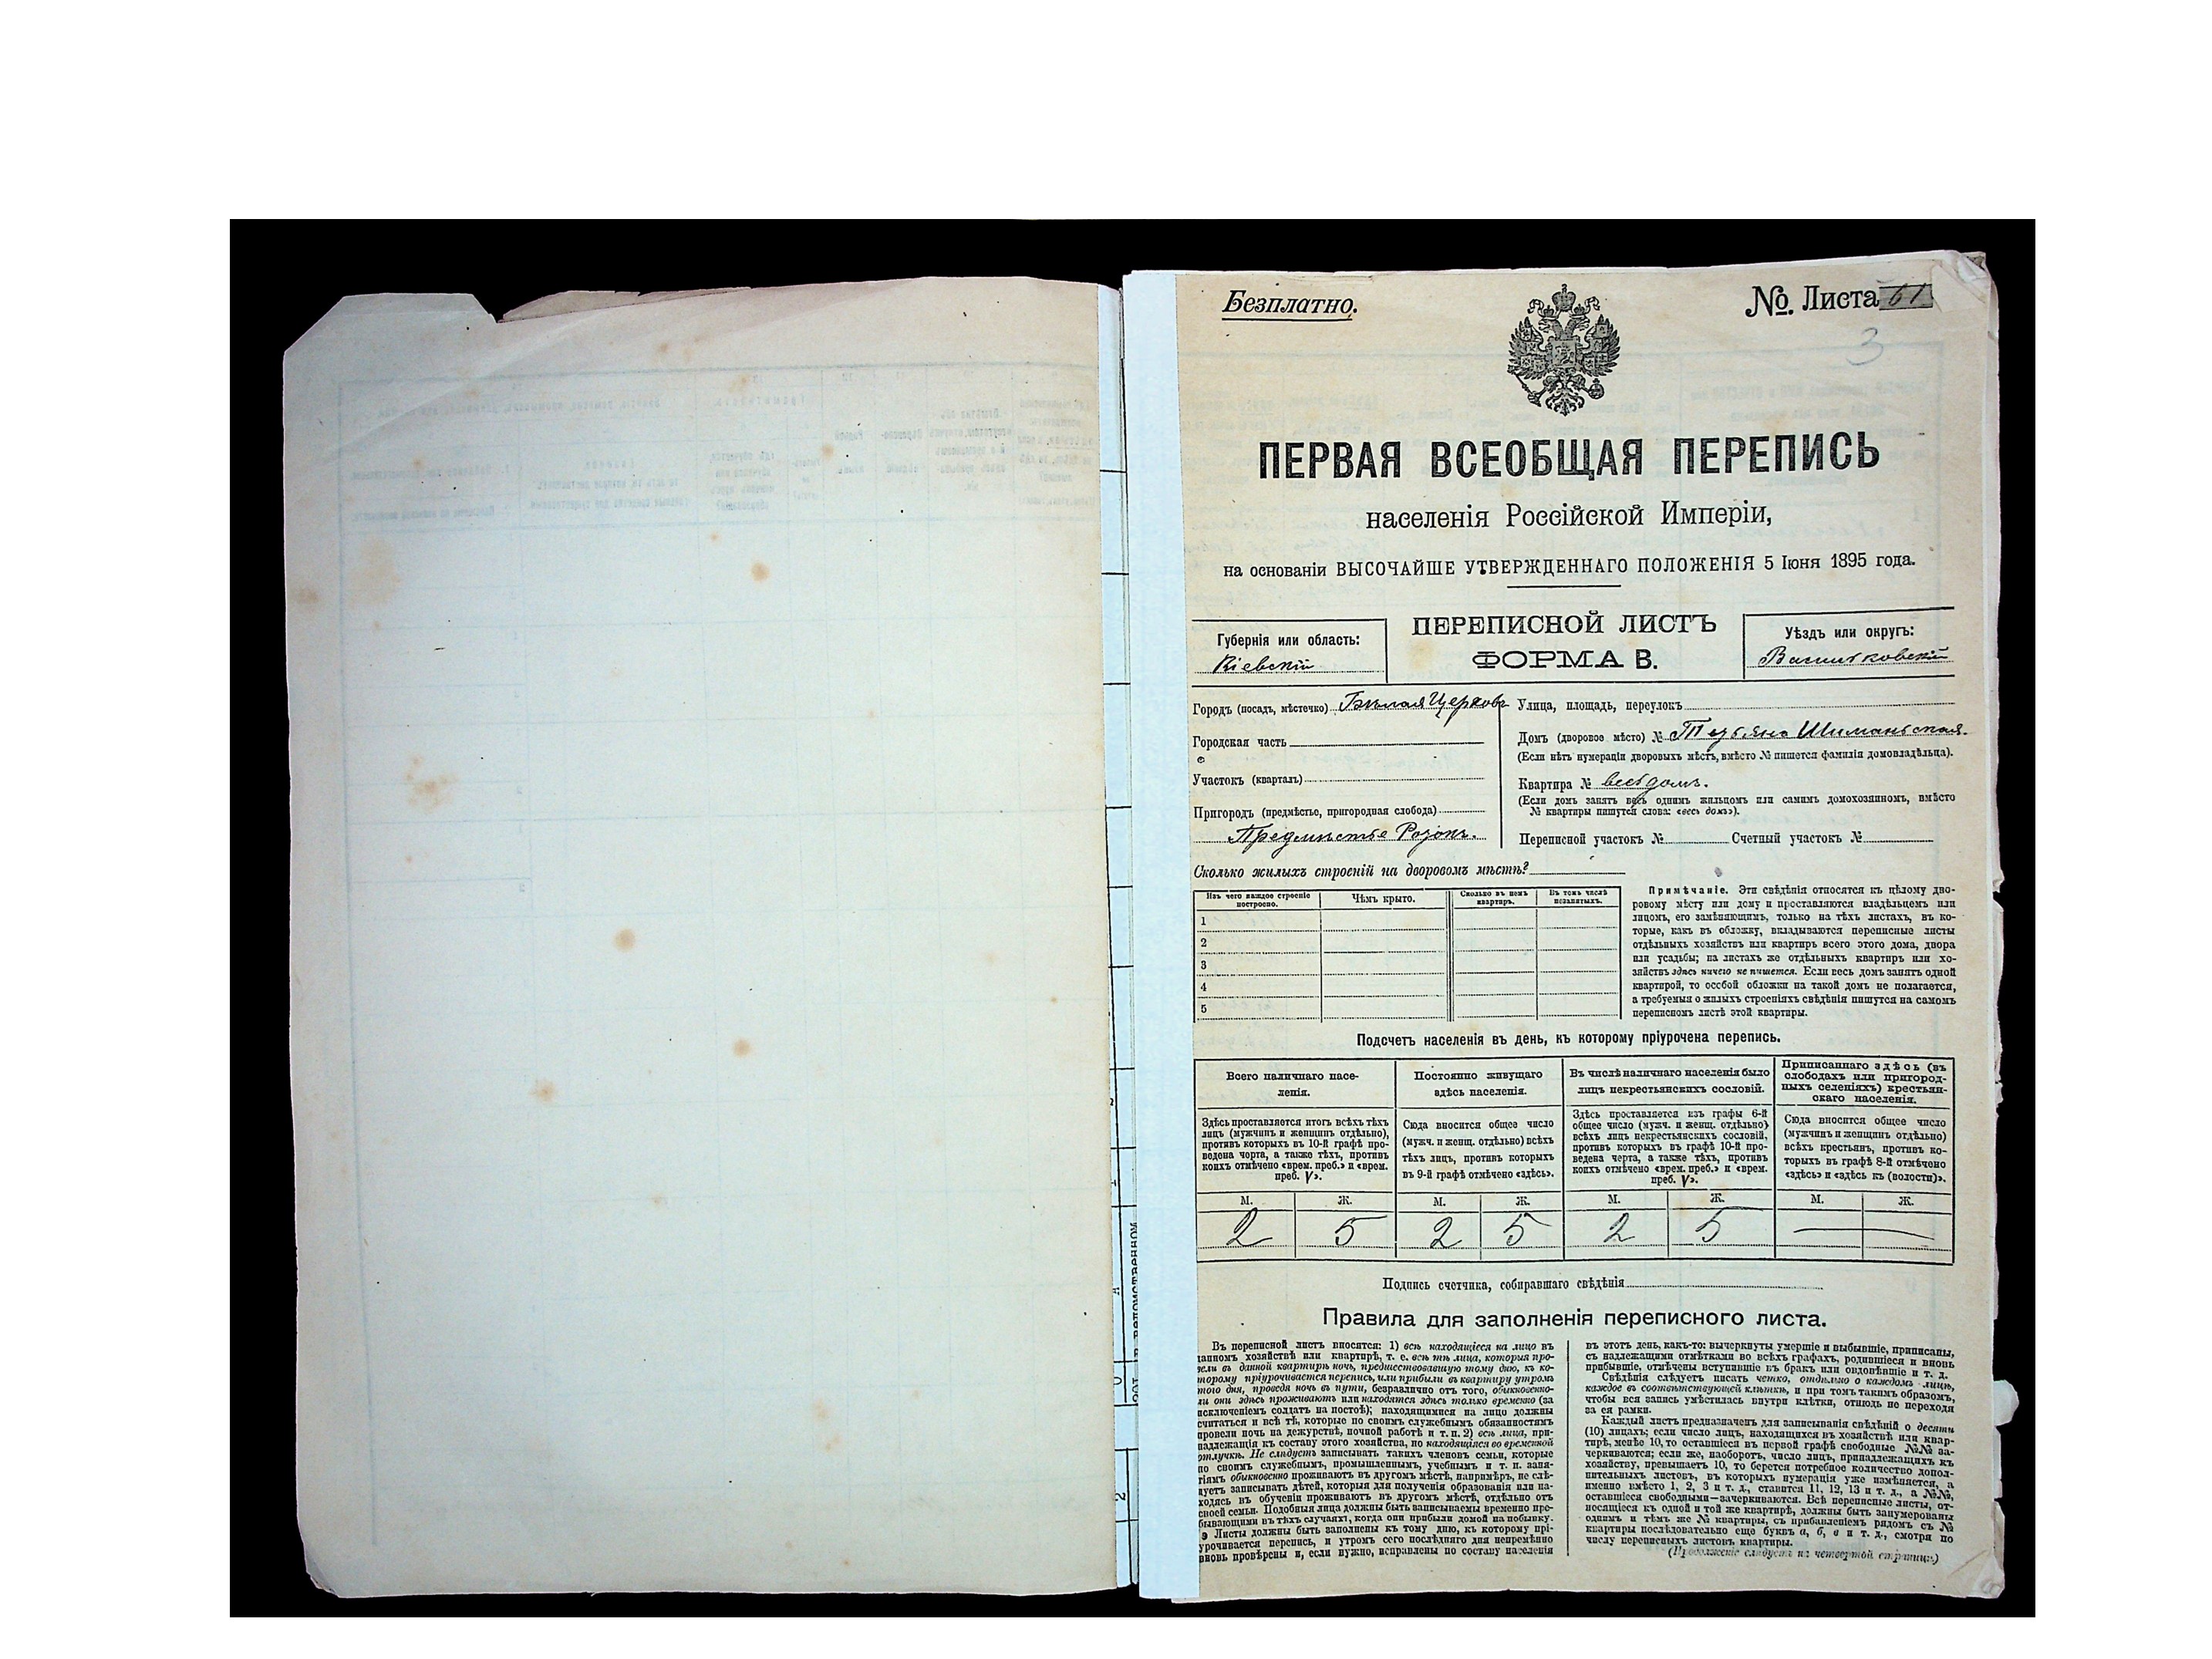 Безплатно.
№. Листа 61
3
ПЕРВАЯ ВСЕОБЩАЯ ПЕРЕПИСЬ
населенія Россійской Имперіи,
на основаніи ВЫСОЧАЙШЕ УТВЕРЖДЕННАГО ПОЛОЖЕНІЯ 5 Іюня 1895 года.
Губернія или область:
Кіевскій
ПЕРЕПИСНОЙ ЛИСТЪ
ФОРМА В.
Уѣздъ или округъ:
Васильковскій
Городъ (посадъ, мѣстечко) Бѣлая Церковь
Городская часть
Участокъ (кварталъ)
Пригородъ (предмѣстье, пригородная слобода)
Предмѣстье
Улица, площадь, переулокъ
Домъ (дворовое мѣсто) №
(Если нѣтъ нумераціи дворовыхъ мѣстъ, вмѣсто № пишется фамилія домовладѣльца).
Квартира № весь домъ.
(Если домъ занятъ весь однимъ жильцомъ или самимъ домохозяиномъ, вмѣсто
№ квартиры пишутся слова: «весь домъ»).
Переписной участокъ № Счетный участокъ №
Сколько жилыхъ строеній на дворовомъ мѣстѣ?
Изъ чего каждое строеніе
построено.
Чѣмъ крыто.
Сколько въ немъ
квартиръ.
Въ томъ числѣ
незанятыхъ.
1
2
3
4
5
Примѣчаніе. Эти свѣдѣнія относятся къ цѣлому дво-
ровому мѣсту или дому и проставляются владѣльцемъ или
лицомъ, его замѣняющимъ, только на тѣхъ листахъ, въ ко-
торые, какъ въ обложку, вкладываются переписные листы
отдѣльныхъ хозяйствъ или квартиръ всего этого дома, двора
или усадьбы; на листахъ же отдѣльныхъ квартиръ или хо-
зяйствъ здѣсь ничего не пишется. Если весь домъ занятъ одной
квартирой, то особой обложки на такой домъ не полагается,
а требуемыя о жилыхъ строеніяхъ свѣдѣнія пишутся на самомъ
переписномъ листѣ этой квартиры.
Подсчетъ населенія въ день, къ которому пріурочена перепись.
Всего наличнаго насе-
ленія.
Здѣсь проставляется итогъ всѣхъ тѣхъ
лицъ (мужчинъ и женщинъ отдѣльно),
противъ которыхъ въ 10-й графѣ про-
ведена черта, а также тѣхъ, противъ
коихъ отмѣчено «врем. преб.» и «врем.
преб. V».
Постоянно живущаго
здѣсь населенія.
Сюда вносится общее число
(мужч. и женщ. отдѣльно) всѣхъ
тѣхъ лицъ, противъ которыхъ
въ 9-й графѣ отмѣчено «здѣсь».
Въ числѣ наличнаго населенія было
лицъ некрестьянскихъ сословій.
Здѣсь проставляется изъ графы 6-й
общее число (мужч. и женщ. отдѣльно)
всѣхъ лицъ некрестьянскихъ сословій,
противъ которыхъ въ графѣ 10-й про-
ведена черта, а также тѣхъ, противъ
коихъ отмѣчено «врем. преб.» и «врем.
преб. V».
Приписаннаго здѣсь (въ
слободахъ или пригород-
ныхъ селеніяхъ) крестьян-
скаго населенія.
Сюда вносится общее число
(мужчинъ и женщинъ отдѣльно)
всѣхъ крестьянъ, противъ ко-
торыхъ въ графѣ 8-й отмѣчено
«здѣсь» и «здѣсь къ (волости)».
М. Ж. М. Ж. М. Ж. М. Ж.
2 5 2 5 2 5 — —
Подпись счетчика, собиравшаго свѣдѣнія
Правила для заполненія переписного листа.
Въ переписной листъ вносятся: 1) всѣ находящіеся на лицо въ
данномъ хозяйствѣ или квартирѣ, т. е. всѣ тѣ лица, которыя про-
вели въ данной квартирѣ ночь, предшествовавшую тому дню, къ ко-
торому пріурочивается перепись, или прибыли въ квартиру утромъ
того дня, проведя ночь въ пути, безразлично отъ того, обыкновенно-
ли они здѣсь проживаютъ или находятся здѣсь только временно (за
исключеніемъ солдатъ на постоѣ); находящимися на лицо должны
считаться и всѣ тѣ, которые по своимъ служебнымъ обязанностямъ
провели ночь на дежурствѣ, ночной работѣ и т. п. 2) всѣ лица, при-
надлежащія къ составу этого хозяйства, но находящіяся во временной
отлучкѣ. Не слѣдуетъ записывать такихъ членовъ семьи, которые
по своимъ служебнымъ, промышленнымъ, учебнымъ и т. п. заня-
тіямъ обыкновенно проживаютъ въ другомъ мѣстѣ, напримѣръ, не слѣ-
дуетъ записывать дѣтей, которыя для полученія образованія или на-
ходясь въ обученіи проживаютъ въ другомъ мѣстѣ, отдѣльно отъ
своей семьи. Подобныя лица должны быть записываемы временно пре-
бывающими въ тѣхъ случаяхъ, когда они прибыли домой на побывку.
Листы должны быть заполнены къ тому дню, къ которому прі-
урочивается перепись, и утромъ сего послѣдняго дня непремѣнно
вновь провѣрены и, если нужно, исправлены по составу населенія
въ этотъ день, какъ-то: вычеркнуты умершіе и выбывшіе, приписаны,
съ надлежащими отмѣтками во всѣхъ графахъ, родившіеся и вновь
прибывшіе, отмѣчены вступившіе въ бракъ или овдовѣвшіе и т. д.
Свѣдѣнія слѣдуетъ писать четко, отдѣльно о каждомъ лицѣ,
каждое въ соотвѣтствующей клѣткѣ, и при томъ такимъ образомъ,
чтобы вся запись умѣстилась внутри клѣтки, отнюдь не переходя
за ея рамки.
Каждый листъ предназначенъ для записыванія свѣдѣній о десяти
(10) лицахъ; если число лицъ, находящихся въ хозяйствѣ или квар-
тирѣ, менѣе 10, то оставшіеся въ первой графѣ свободные №№ за-
черкиваются; если же, наоборотъ, число лицъ, принадлежащихъ къ
хозяйству, превышаетъ 10, то берется потребное количество допол-
нительныхъ листовъ, въ которыхъ нумерація уже измѣняется, а
именно вмѣсто 1, 2, 3 и т. д., ставится 11, 12, 13 и т. д., а №№,
оставшіеся свободными—зачеркиваются. Всѣ переписные листы, от-
носящіеся къ одной и той же квартирѣ, должны быть занумерованы
однимъ и тѣмъ же № квартиры, съ прибавленіемъ рядомъ съ №
квартиры послѣдовательно еще буквъ а, б, в и т. д., смотря по
числу переписныхъ листовъ квартиры.
(Продолженіе слѣдуетъ на четвертой страницѣ)